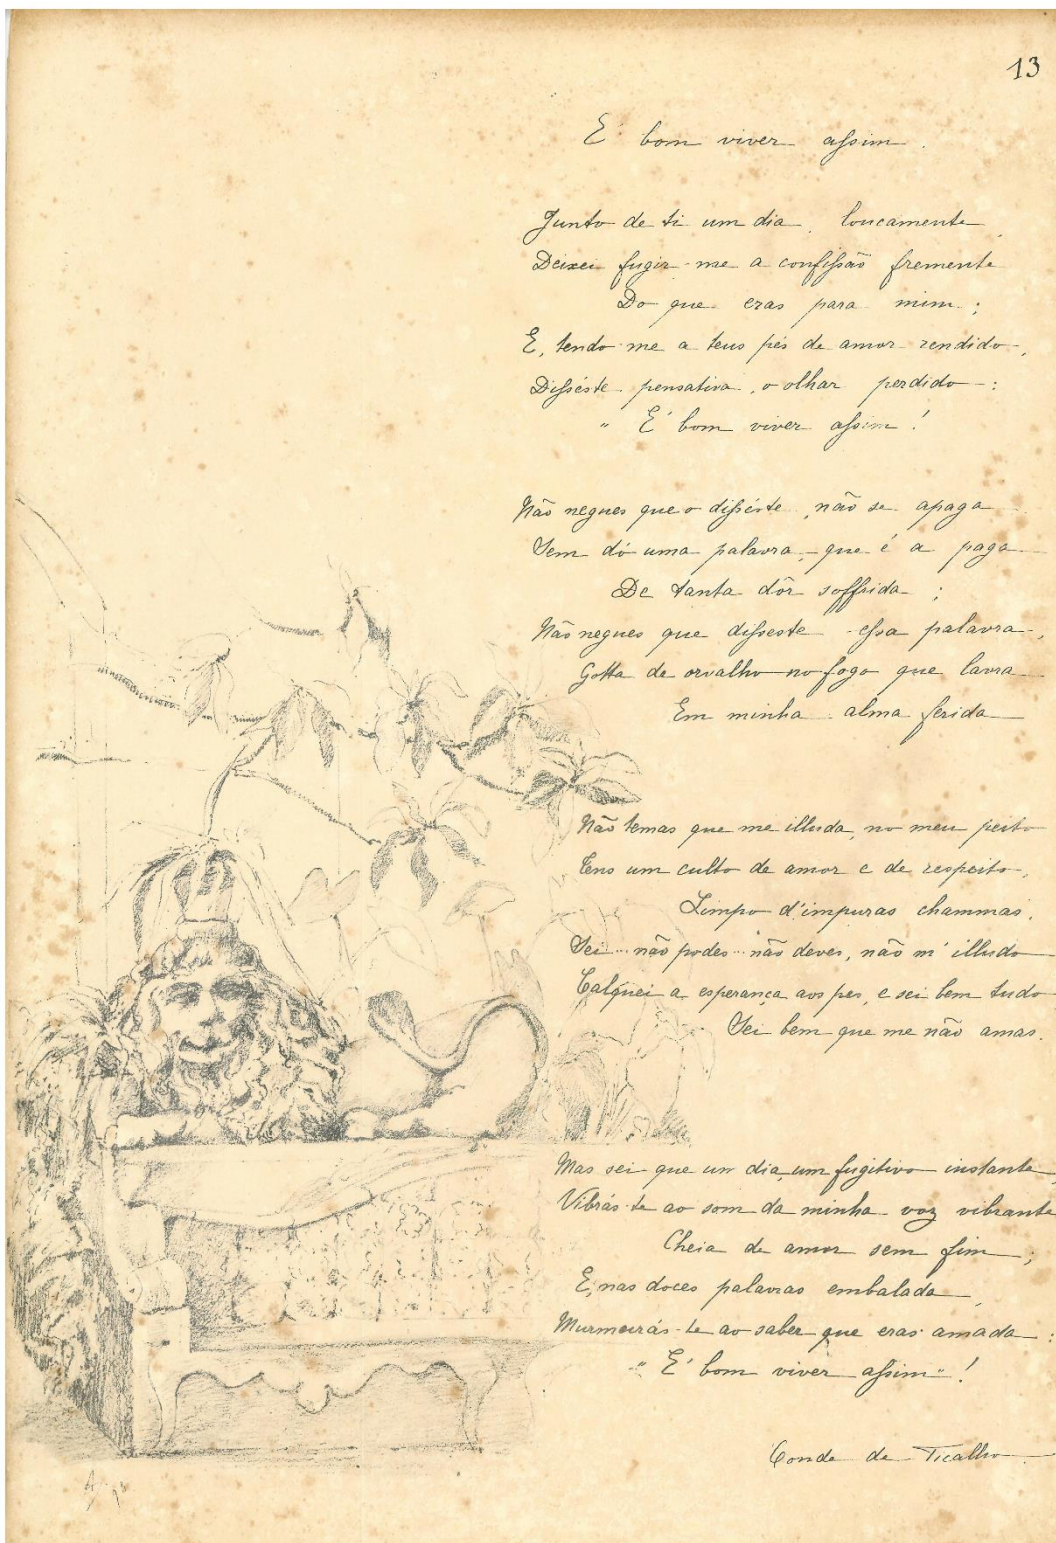 13
É bom viver assim.
Junto de ti um dia, loucamente,
Deixei fugir-me a confissão fremente
Do que eras para mim;
E, tendo-me a teus pés de amor rendido,
Disséste pensativa, o olhar perdido:
" É bom viver assim!
Não negues que o disséste, não se apaga
Sem dó uma palavra, que é a paga
De tanta dôr soffrida;
Não negues que disseste essa palavra,
Gotta de orvalho no fogo que lavra
Em minha alma ferida
Não temas que me illuda, no meu peito
Tens um culto de amor e de respeito,
Limpo d'impuras chammas.
Sei... não podes... não deves, não m'illudo
Calquei a esperança aos pes, e sei bem tudo
Sei bem que me não amas.
Mas sei que um dia, um fugitivo instante,
Vibrás-te ao som da minha voz vibrante
Cheia de amor sem fim;
E, nas doces palavras embalada,
Murmurás-te ao saber que eras amada:
"É bom viver assim"!
Conde de Ficalho.